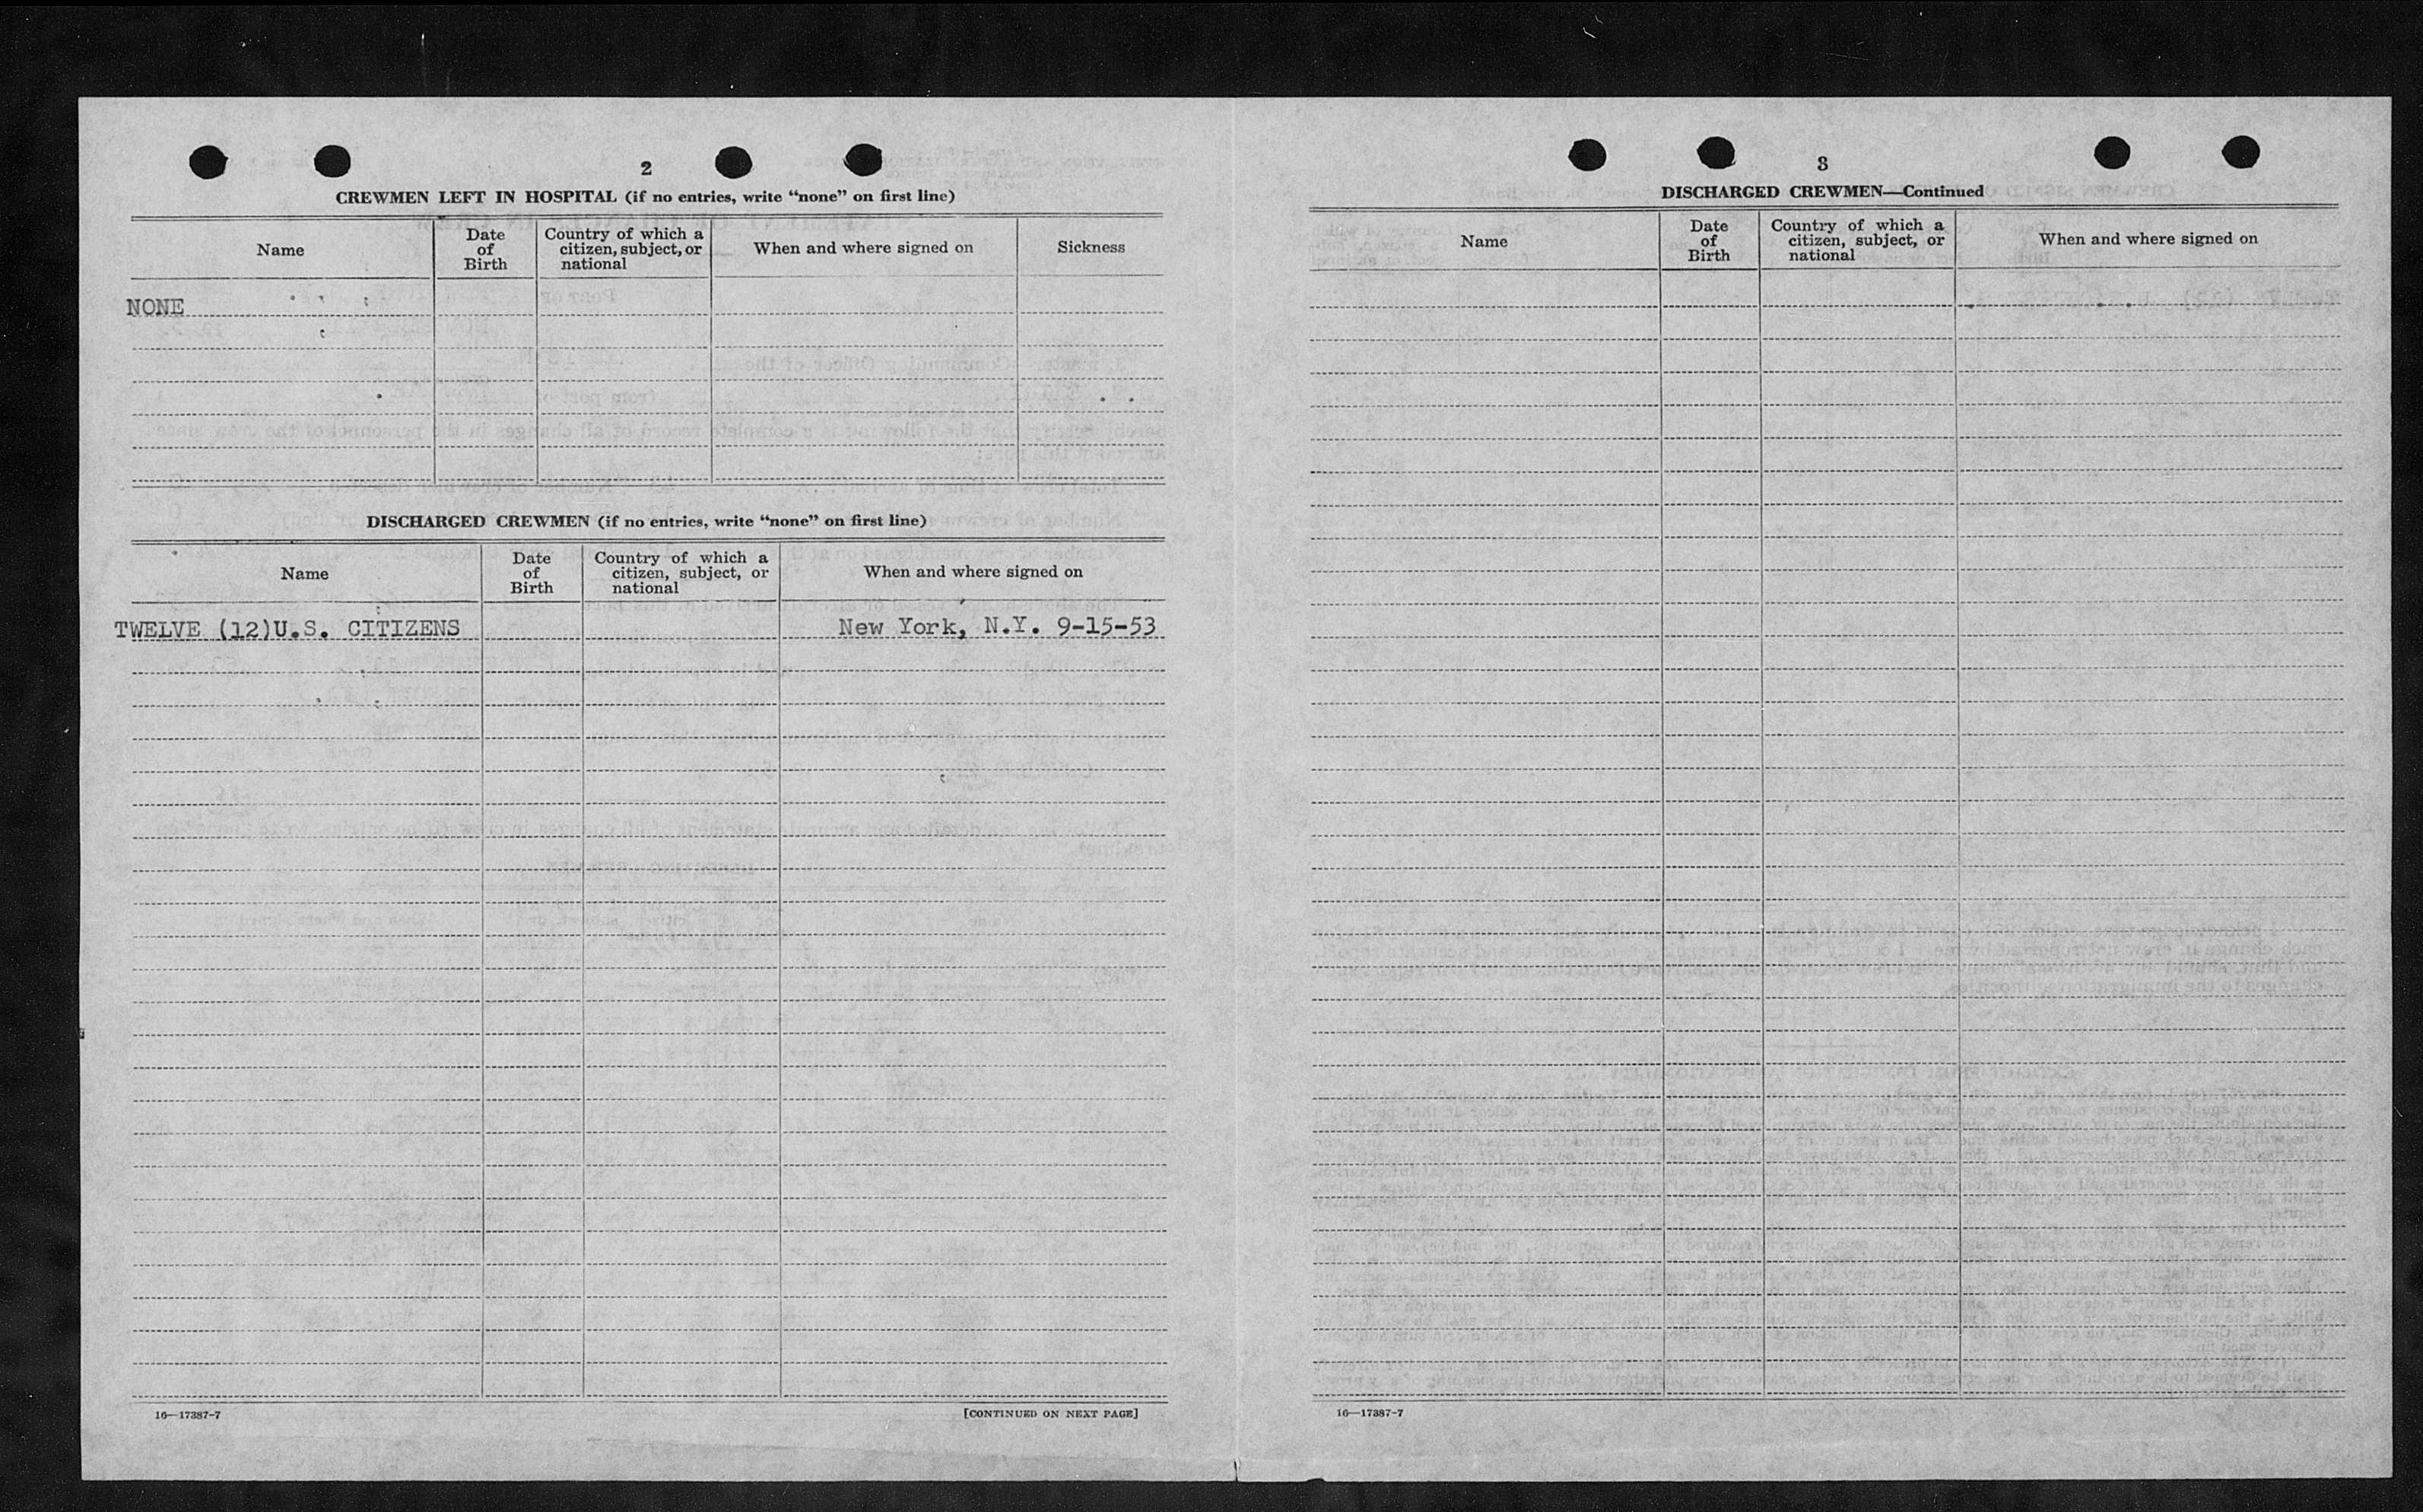 2
CREWMEN LEFT IN HOSPITAL (if no entries, write “none” on first line)
Name
Date of Birth
Country of which a citizen, subject, or national
When and where signed on
Sickness
NONE
DISCHARGED CREWMEN (if no entries, write “none” on first line)
Name
Date of Birth
Country of which a citizen, subject, or national
When and where signed on
TWELVE (12)U.S. CITIZENS New York, N.Y. 9-15-53
16—17387-7 [CONTINUED ON NEXT PAGE]
3
DISCHARGED CREWMEN—Continued
Name
Date of Birth
Country of which a citizen, subject, or national
When and where signed on
16—17387-7